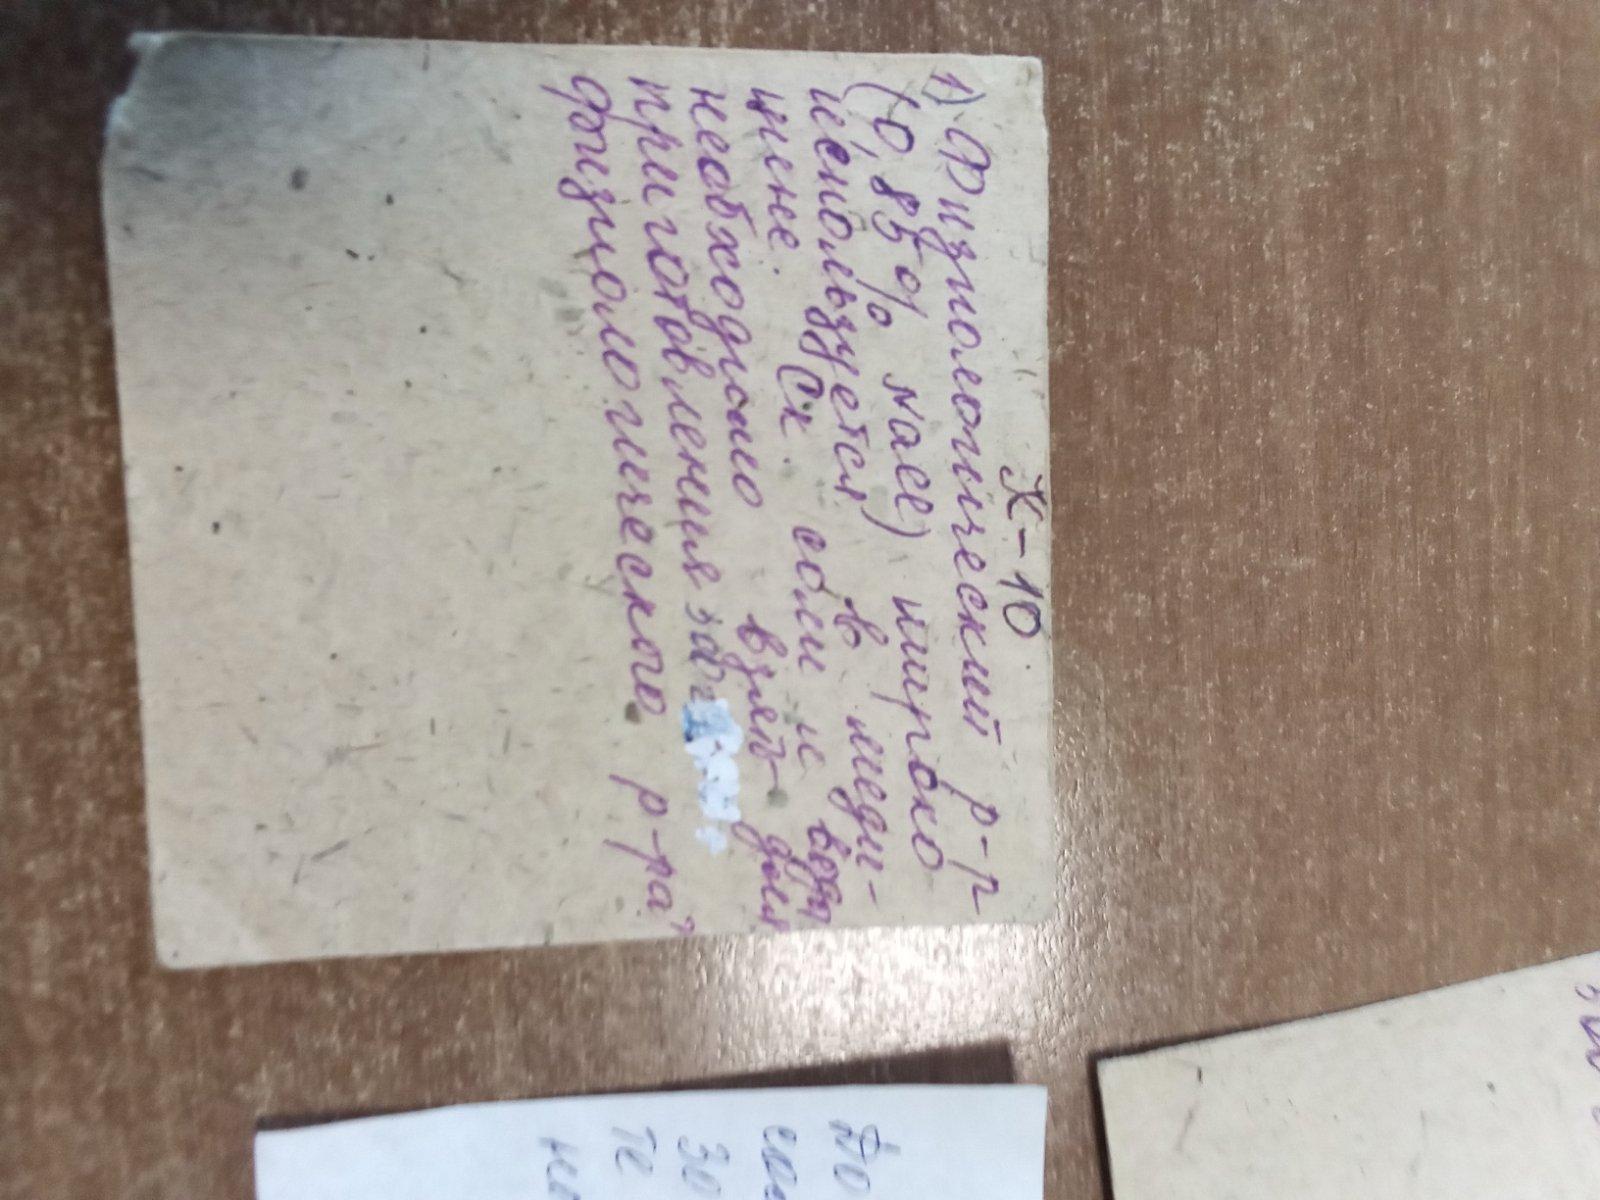 Х-10
1) Физиологический р-р
(0,85% NaCl) широко
используется в меди-
цине. Ск. соли и воды
необходимо взять для
приготовления
физиологического р-ра?
До